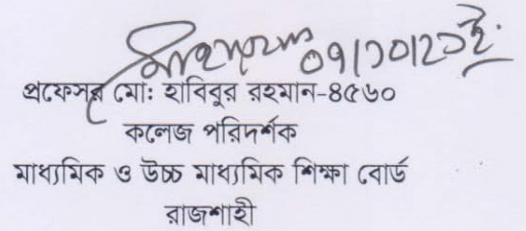 ০৭/১০/২১ইং
প্রফেসর মো: হাবিবুর রহমান-৪৫৬০
কলেজ পরিদর্শক
মাধ্যমিক ও উচ্চ মাধ্যমিক শিক্ষা বোর্ড
রাজশাহী